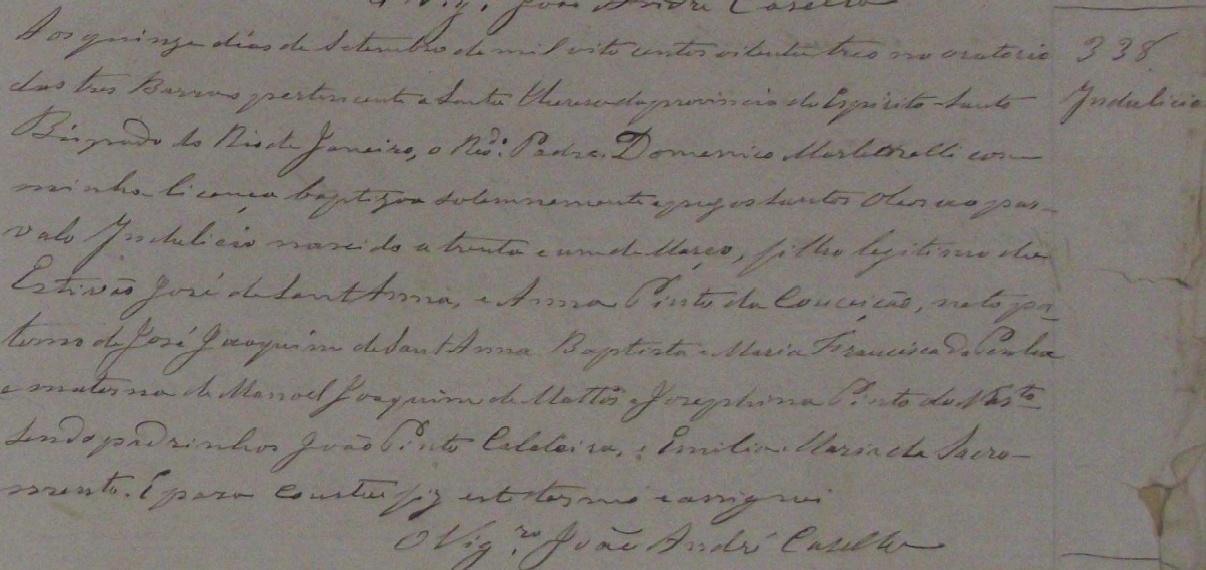 O Vig. João André Casella
Aos quinze dias de Setembro de mil oito centos oitenta tres no oratorio
das tres Barras pertencente a Santa Thereza da provincia do Espirito-Santo
Bispado do Rio de Janeiro, o Red.º Padre Domenico com
minha licença baptizou solemnemente e puz os Santos Oleos ao par-
vulo Indulicio nascido a trenta e um de Março, filho legitimo de
Estevão José de Sant'Anna, e Anna Pinto da Conceição, neto pa-
terno de José Joaquim de Sant'Anna Baptista e Maria Francisca da Penha
e materno de Manoel Joaquim de Mattos e Josephina Pinto do
Sendo padrinhos João Pinto Caldeira, e Emilia Maria do Sacra-
mento. E para constar fiz este termo e assignei
O Vig.ro João André Casella
338
Indulicio